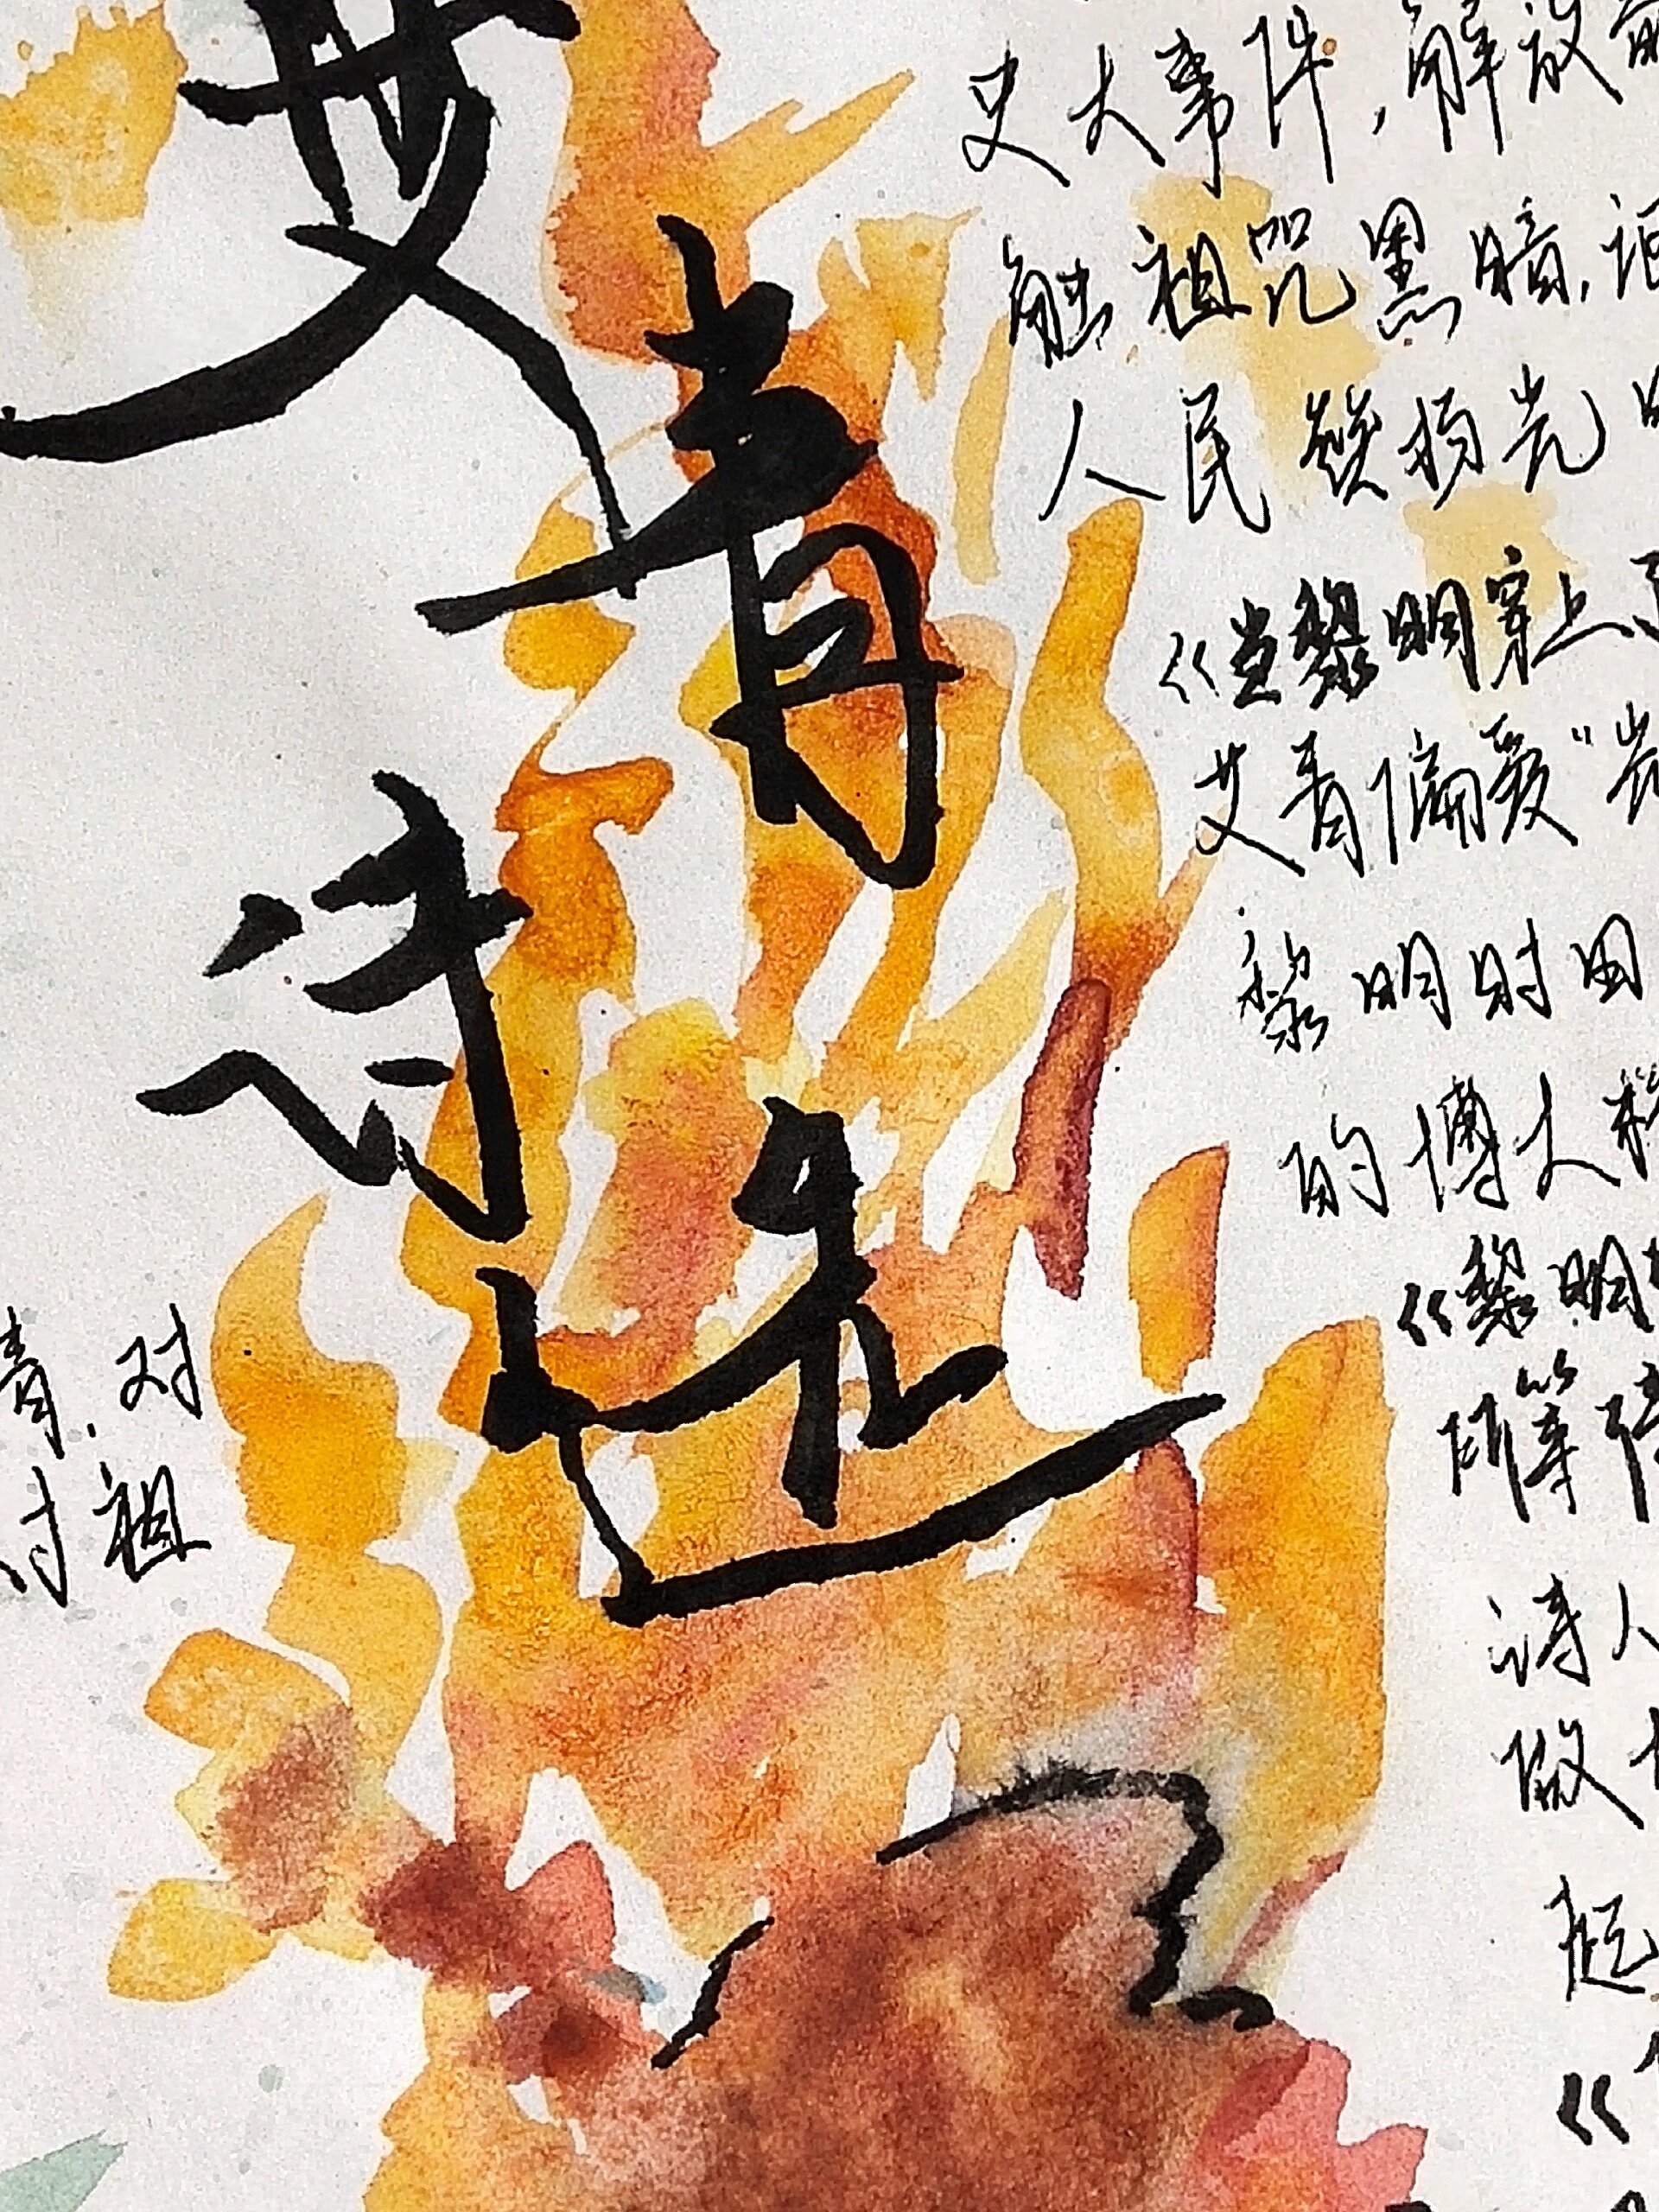 艾青
诗选
史大事件，解放前
触诅咒黑暗，讴
人民 發扬光
《当黎明穿上了
艾青偏爱“光
黎明时田
的博大
《黎明
所筆
诗人
做
起
《
青，对
对祖